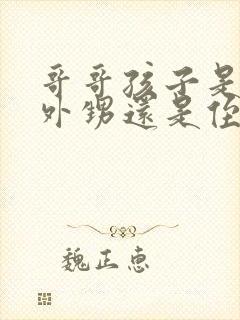 哥哥孩子是
外甥還是侄
魏正惠